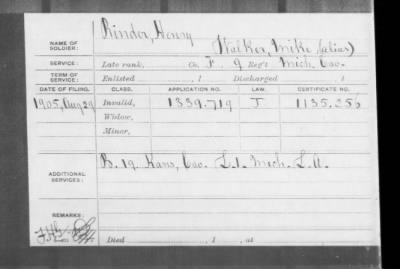 Rinder, Henry
NAME OF SOLDIER: Walker, Mike, (alias)
SERVICE: Late rank, Co. F, 9 Reg't Mich. Cav.
TERM OF SERVICE: Enlisted , 1 Discharged , 1
DATE OF FILING. CLASS. APPLICATION NO. LAW. CERTIFICATE NO.
1905, Aug 29 Invalid, 1339.719 J 1135.256
Widow,
Minor,
ADDITIONAL SERVICES: B. 19. Kans, Cav. L. 1. Mich. L. A.
REMARKS:
Died , 1 , at